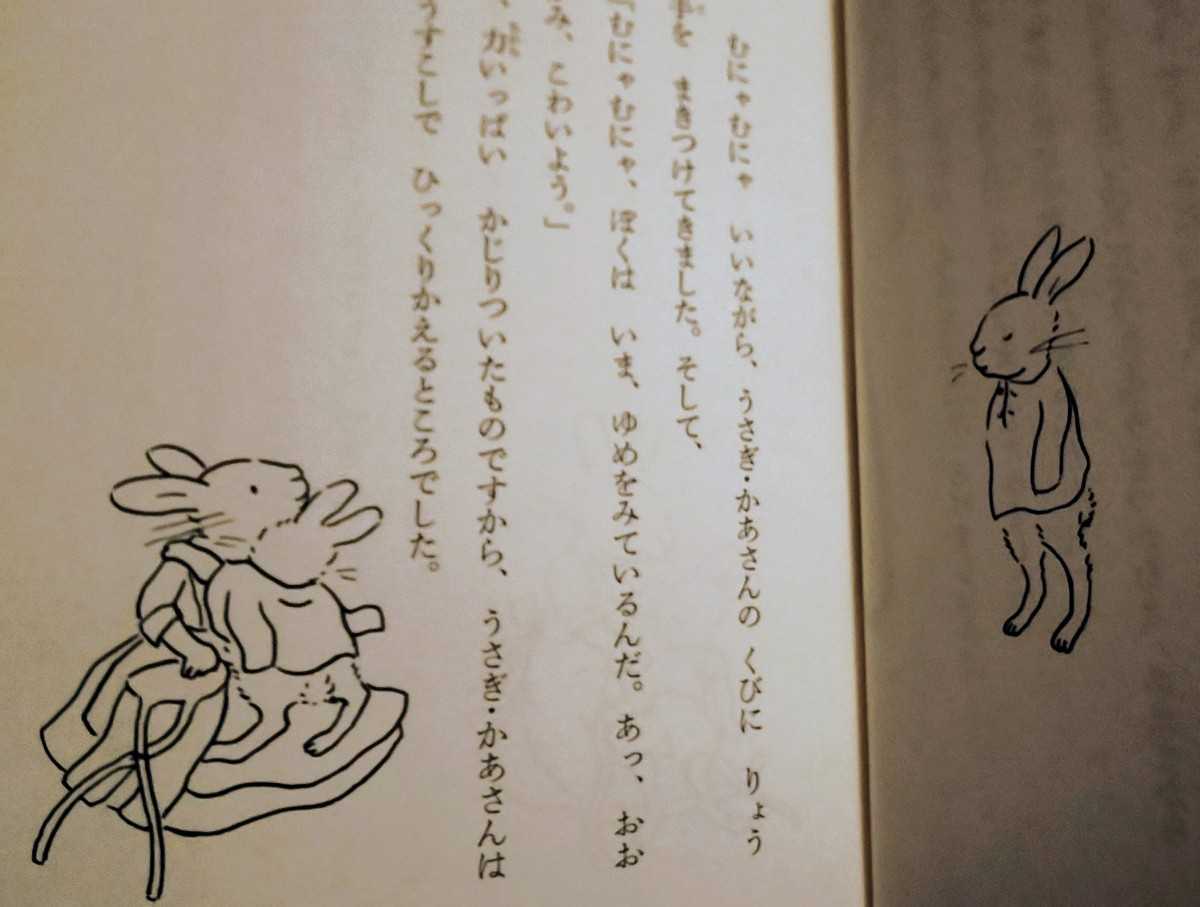 むにゃむにゃ いいながら、うさぎ・かあさんの くびに りょう
手を まきつけてきました。そして、
「むにゃむにゃ、ぼくは いま、ゆめをみているんだ。あっ、おお
み、こわいよう。」
、力いっぱい かじりついたものですから、うさぎ・かあさんは
うすこしで ひっくりかえるところでした。